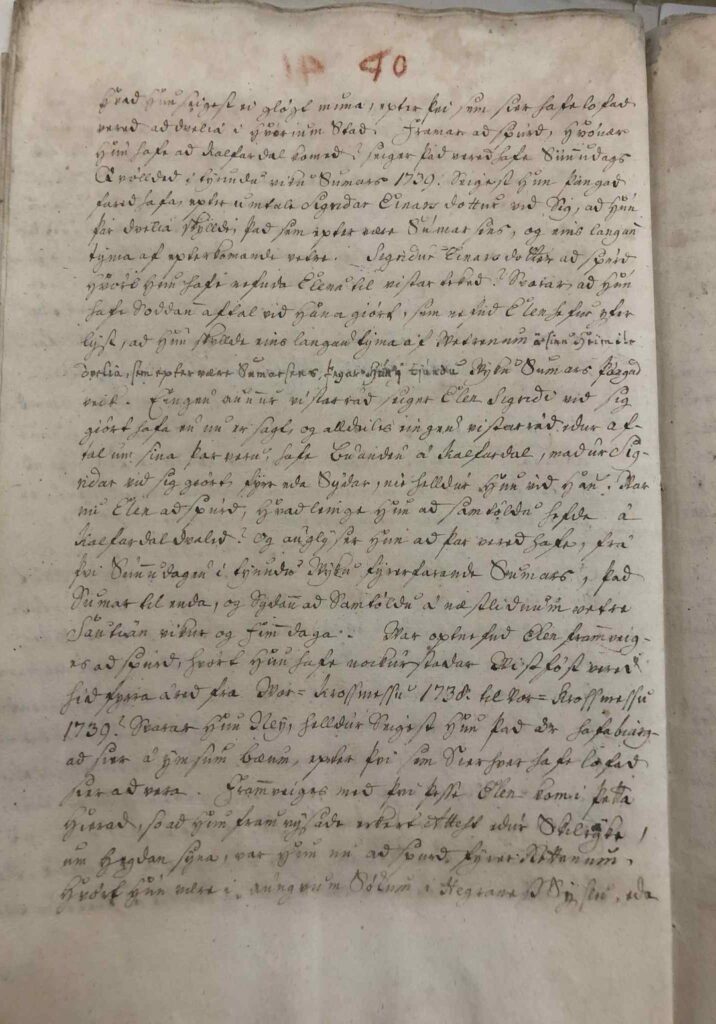 40
Hvad Hun seigest ei gløgt muna, epter þvi sem sier hafe lofad
vered ad dvelia i Hvorium Stad. Framar ad spurd, Hvønær
Hun hafe ad Kalfardal komed? seiger þad vered hafe Sunnudags
Qvølded i tyundu viku Sumars 1739. Seigest Hun þangad
fared hafa, epter umtale Sigridar Einars dottur vid Sig, ad Hun
þar dvelia skyllde, þad sem epter være Sumarsens, og eins langan
tyma af epterkomande vetre. Sigridur Einars dotter ad spurd
Hvort Hun hafe nefnda Elenu til vistar teked? Svarar, ad Hun
hafe Soddan aftal vid Hana giørt, sem nefnd Elen hefur yfer
lyst, ad Hun skyllde eins langan tyma af Vetrenum á sinu Heimile
dvelia, sem epter være Sumarsens, þegar Hun i tiundu Viku Sumars þangad
veik. Eingen annur vistarrád seiger Elen Sigride vid sig
giørt hafa en nu er sagt, og alldeiles eingen vistarrád edur af-
tal um sina þar veru, hafe Buanden á Kalfardal, madur Sig-
ridar vid sig giørt, fyrr nie Sydar, nie helldur Hun vid Han. Var
nu Elen ad spurd, Hvad leinge Hun ad samtøldu hefde á
Kalfardal dvalid? Og auglyser Hun ad þar vered hafe, frá
þvi Sunnudagen i tyundu Viku fyrerfarande Sumars, þad
Sumar til enda, og Sydan ad Samtøldu á næstlidnum vetre
Sautián vikur og fimm daga. Var optnefnd Elen framveig-
es ad spurd, hvort Hun hafe nockurstadar Vistføst vered
hid fyrra áred frá Vor-Krossmessu 1738. til Vor-Krossmessu
1739? Svarar Hun Ney, helldur Seigest Hun þad ár hafa biarg-
ad sier á ymsum bæum, epter þvi sem Sierhver hafe lofad
sier ad vera. Framveiges med þvi þesse Elen kom i þetta
Hierad, so ad Hun framvysade eckert Attest edur Skilrýke
um Hegdan syna, var Hun nu ad spurd fyrer Rettenum,
Hvort Hun være i aungvum Søkum i Hegraness Syslu, eda